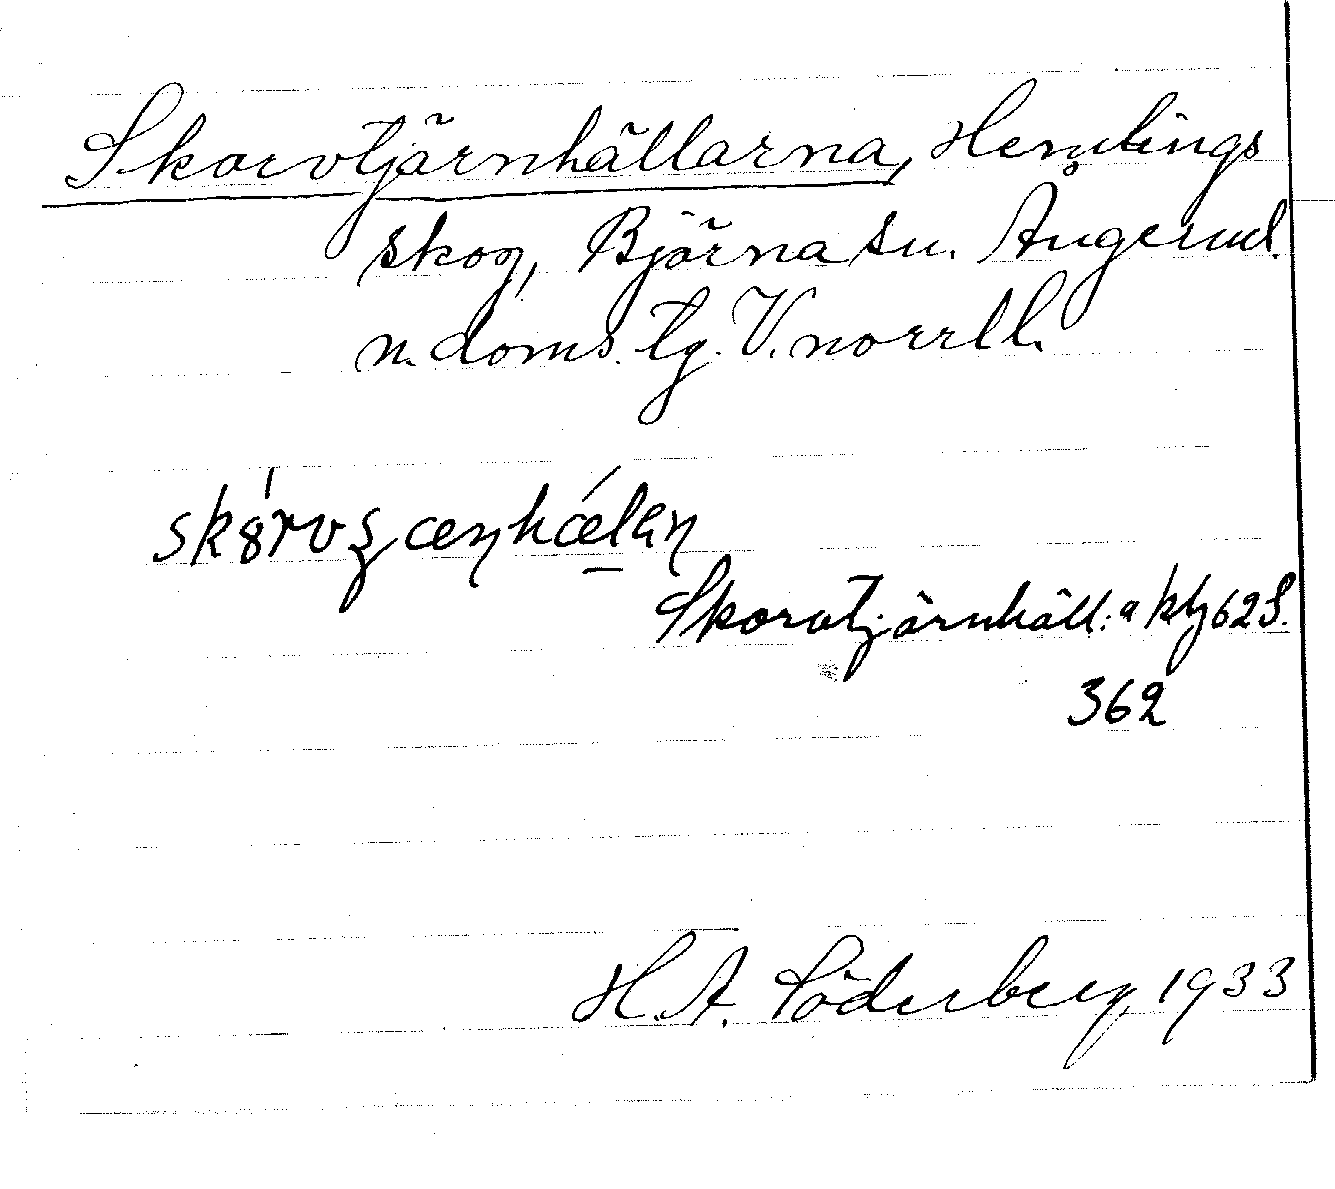 Skorvtjärnhällarna, Hemlings
skog, Björna sn. Ångerml.
n. doms. tg. V.norrl l.
Skorvtjärnhäll:a ktg 62 S.
362
H.A. Söderberg 1933